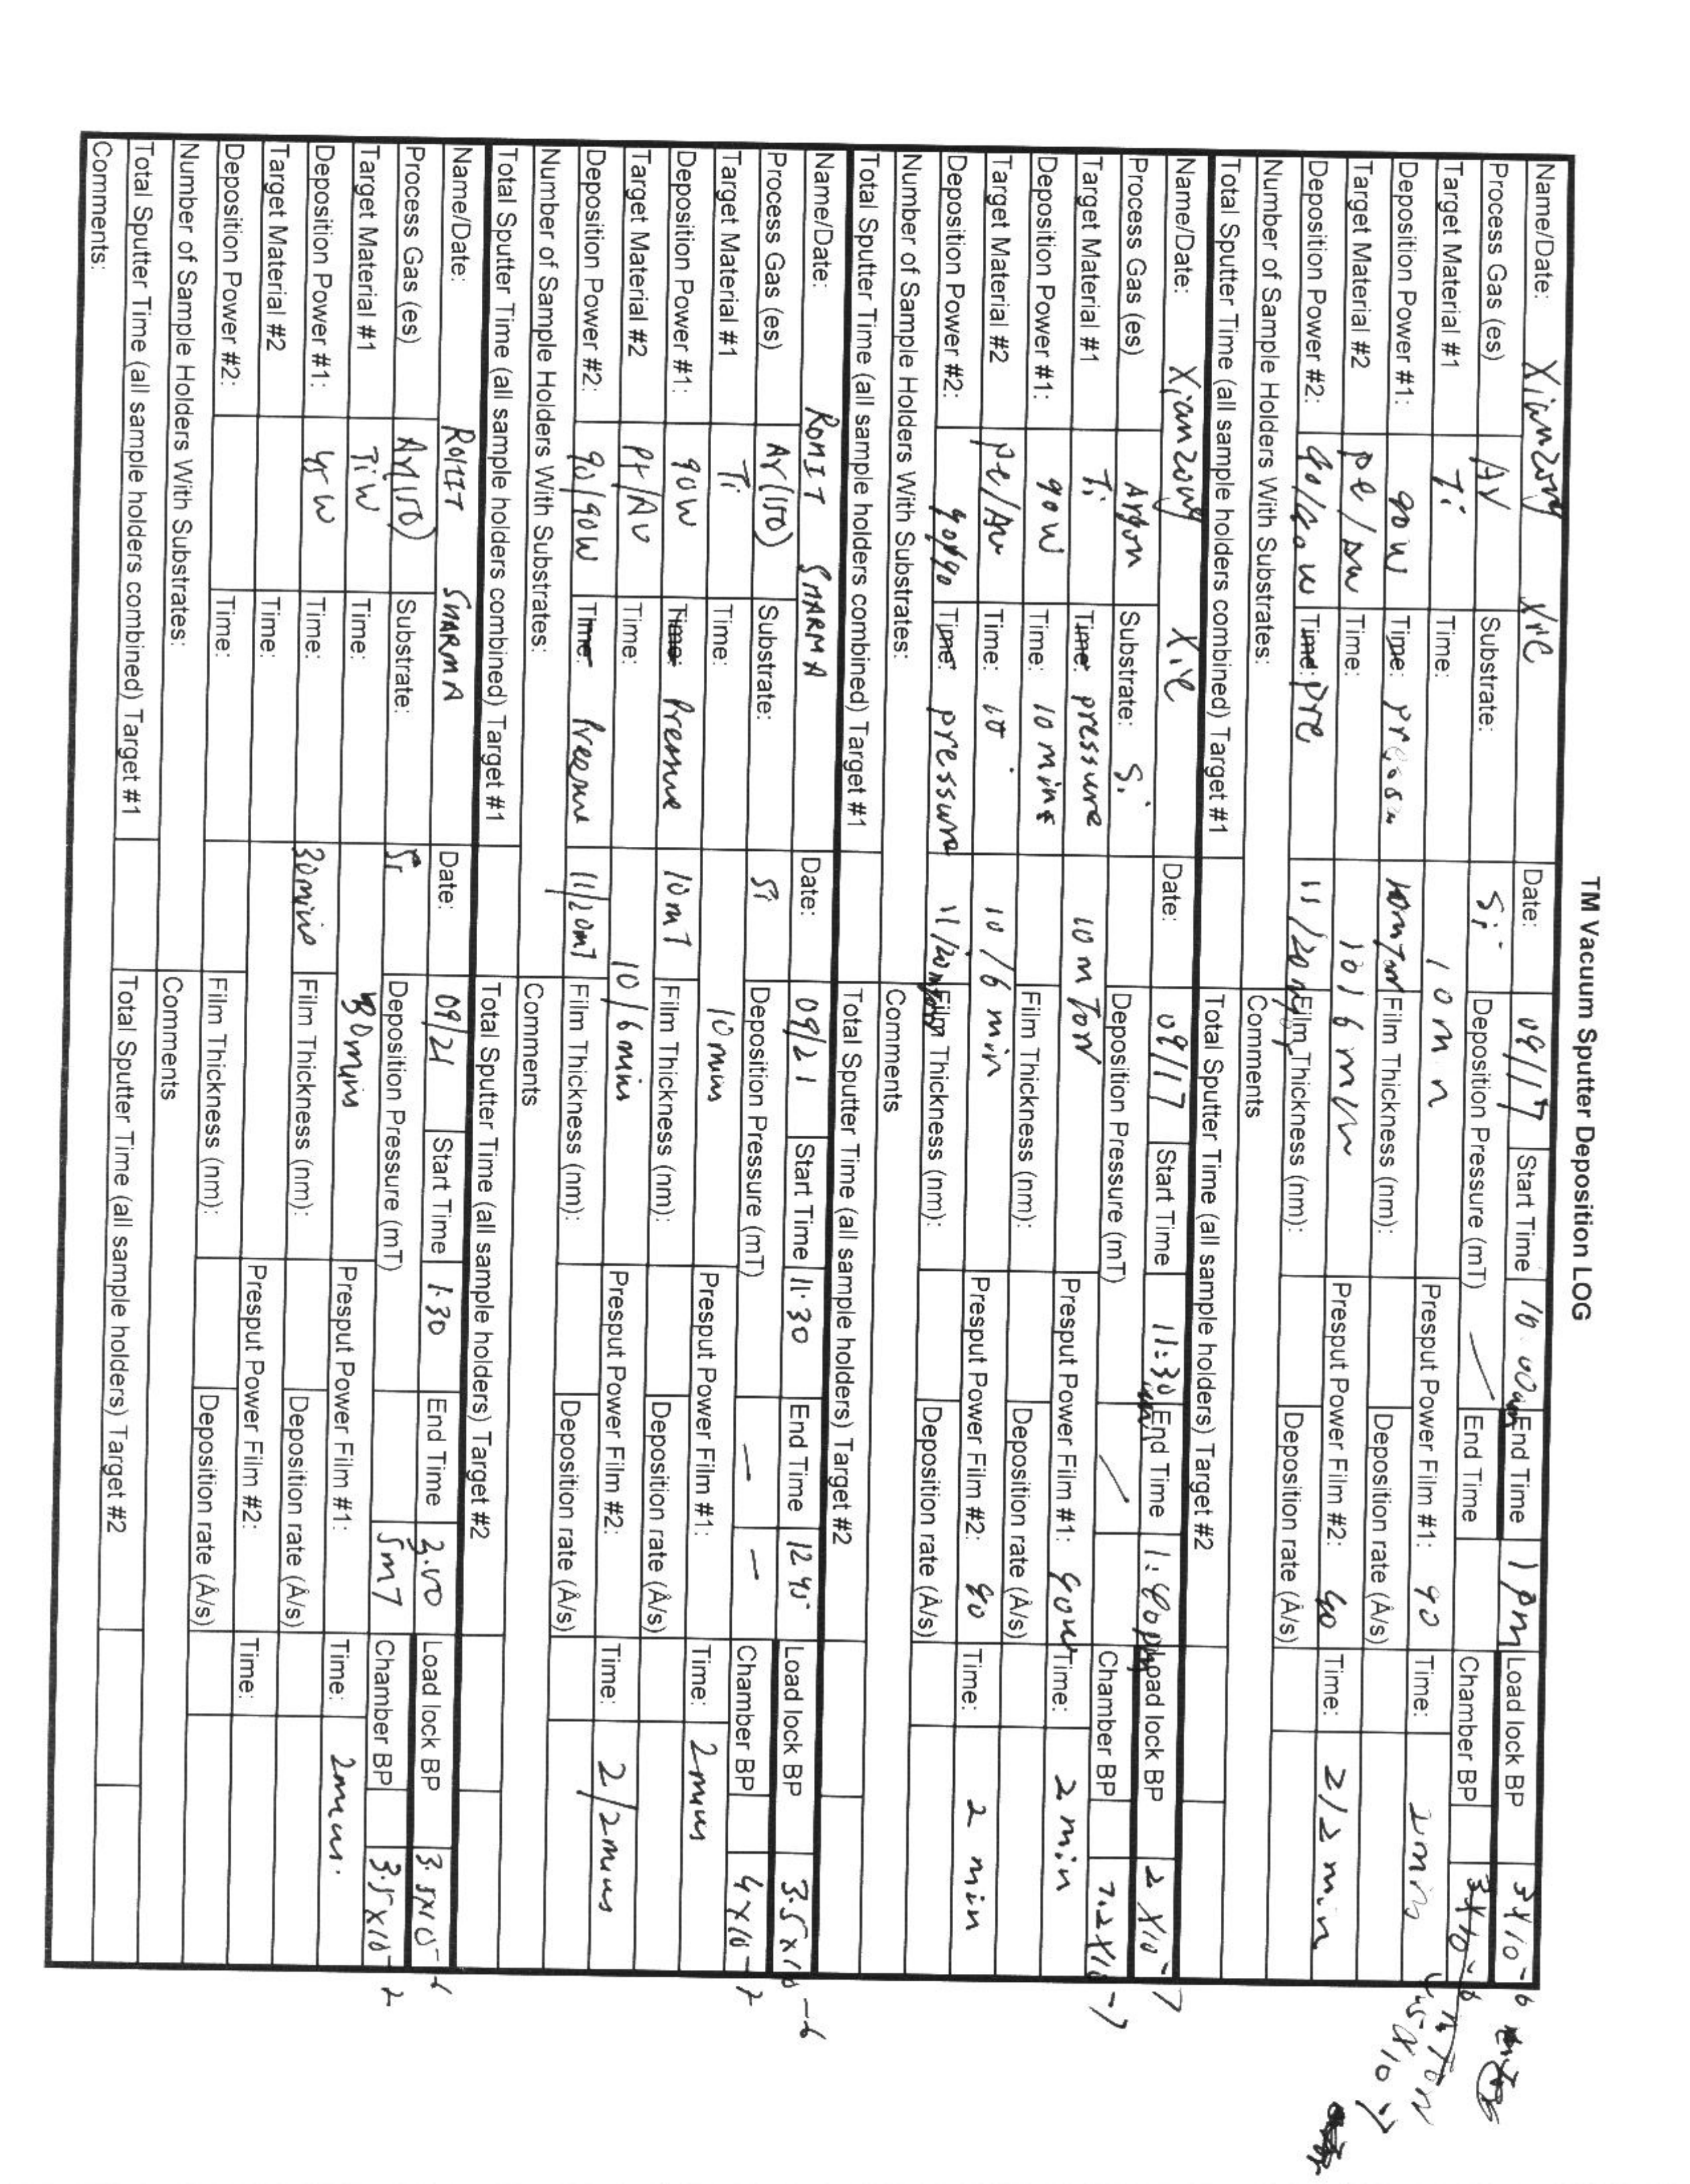 TM Vacuum Sputter Deposition LOG
Name/Date: Xianzong Xie Date: 09/17 Start Time 10:00am End Time 1 pm Load lock BP 3x10-6
Process Gas (es) Ar Substrate: Si Deposition Pressure (mT) / End Time Chamber BP
Target Material #1 Ti Time: 10 min Presput Power Film #1: 90 Time: 2min
Deposition Power #1: 90 W Time: 10mTorr Film Thickness (nm): Deposition rate (Å/s)
Target Material #2 Time: 10/6 min Presput Power Film #2: 90 Time: 2/2 min
Deposition Power #2: 90/90 W Time: pre 11/20 Film Thickness (nm): Deposition rate (Å/s)
Number of Sample Holders With Substrates: Comments
Total Sputter Time (all sample holders combined) Target #1 Total Sputter Time (all sample holders) Target #2
Name/Date: Xianzong Xie Date: 09/17 Start Time 11:30 am End Time 1:40pm Load lock BP 2 x10-7
Process Gas (es) Argon Substrate: Si Deposition Pressure (mT) / Chamber BP 7.2x10-7
Target Material #1 Ti Time: pressure 10 mTorr Presput Power Film #1: 90W Time: 2 min
Deposition Power #1: 90W Time: 10 mins Film Thickness (nm): Deposition rate (Å/s)
Target Material #2 Time: 10 10/6 min Presput Power Film #2: 90 Time: 2 min
Deposition Power #2: 90/90 Time: pressure 11/20 Film Thickness (nm): Deposition rate (Å/s)
Number of Sample Holders With Substrates: Comments
Total Sputter Time (all sample holders combined) Target #1 Total Sputter Time (all sample holders) Target #2
Name/Date: ROHIT SHARMA Date: 09/21 Start Time 11:30 End Time 12:45 Load lock BP 3.5x10-6
Process Gas (es) Ar(150) Substrate: Si Deposition Pressure (mT) — — Chamber BP 4x10-7
Target Material #1 Ti Time: 10 mins Presput Power Film #1: Time: 2mins
Deposition Power #1: 90W Time: Pressure 10mT Film Thickness (nm): Deposition rate (Å/s)
Target Material #2 Pt/Au Time: 10/6 mins Presput Power Film #2: Time: 2/2mins
Deposition Power #2: 90/90W Time: Pressure 11/20mT Film Thickness (nm): Deposition rate (Å/s)
Number of Sample Holders With Substrates: Comments
Total Sputter Time (all sample holders combined) Target #1 Total Sputter Time (all sample holders) Target #2
Name/Date: ROHIT SHARMA Date: 09/21 Start Time 1.30 End Time Load lock BP 3.5x10-6
Process Gas (es) Ar(150) Substrate: Si Deposition Pressure (mT) 5mT Chamber BP 3.5x10-7
Target Material #1 TiW Time: 30mins Presput Power Film #1: Time: 2mins.
Deposition Power #1: Time: 30mins Film Thickness (nm): Deposition rate (Å/s)
Target Material #2 Time: Presput Power Film #2: Time:
Deposition Power #2: Time: Film Thickness (nm): Deposition rate (Å/s)
Number of Sample Holders With Substrates: Comments
Total Sputter Time (all sample holders combined) Target #1 Total Sputter Time (all sample holders) Target #2
Comments: